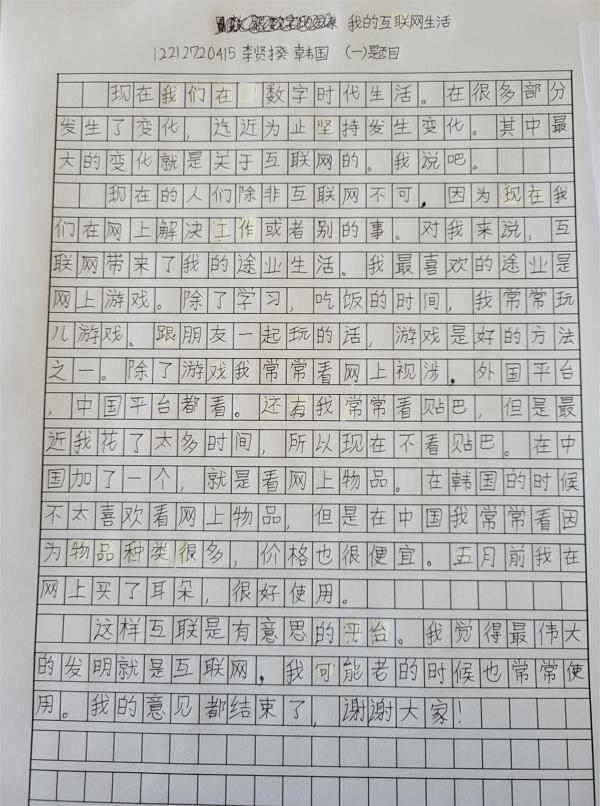 我的互联网生活
12212720415 李贤揆 韩国 (一)题目
现在我们在数字时代生活。在很多部分
发生了变化，迄近为止坚持发生变化。其中最
大的变化就是关于互联网的。我说吧。
现在的人们除非互联网不可，因为现在我
们在网上解决工作或者别的事。对我来说，互
联网带来了我的途业生活。我最喜欢的途业是
网上游戏。除了学习，吃饭的时间，我常常玩
儿游戏。跟朋友一起玩的话，游戏是好的方法
之一。除了游戏我常常看网上视涉，外国平台
，中国平台都看。还有我常常看贴巴，但是最
近我花了太多时间，所以现在不看贴巴。在中
国加了一个，就是看网上物品。在韩国的时候
不太喜欢看网上物品，但是在中国我常常看因
为物品种类很多，价格也很便宜。五月前我在
网上买了耳朵，很好使用。
这样互联是有意思的平台。我觉得最伟大
的发明就是互联网，我可能老的时候也常常使
用。我的意见都结束了，谢谢大家！